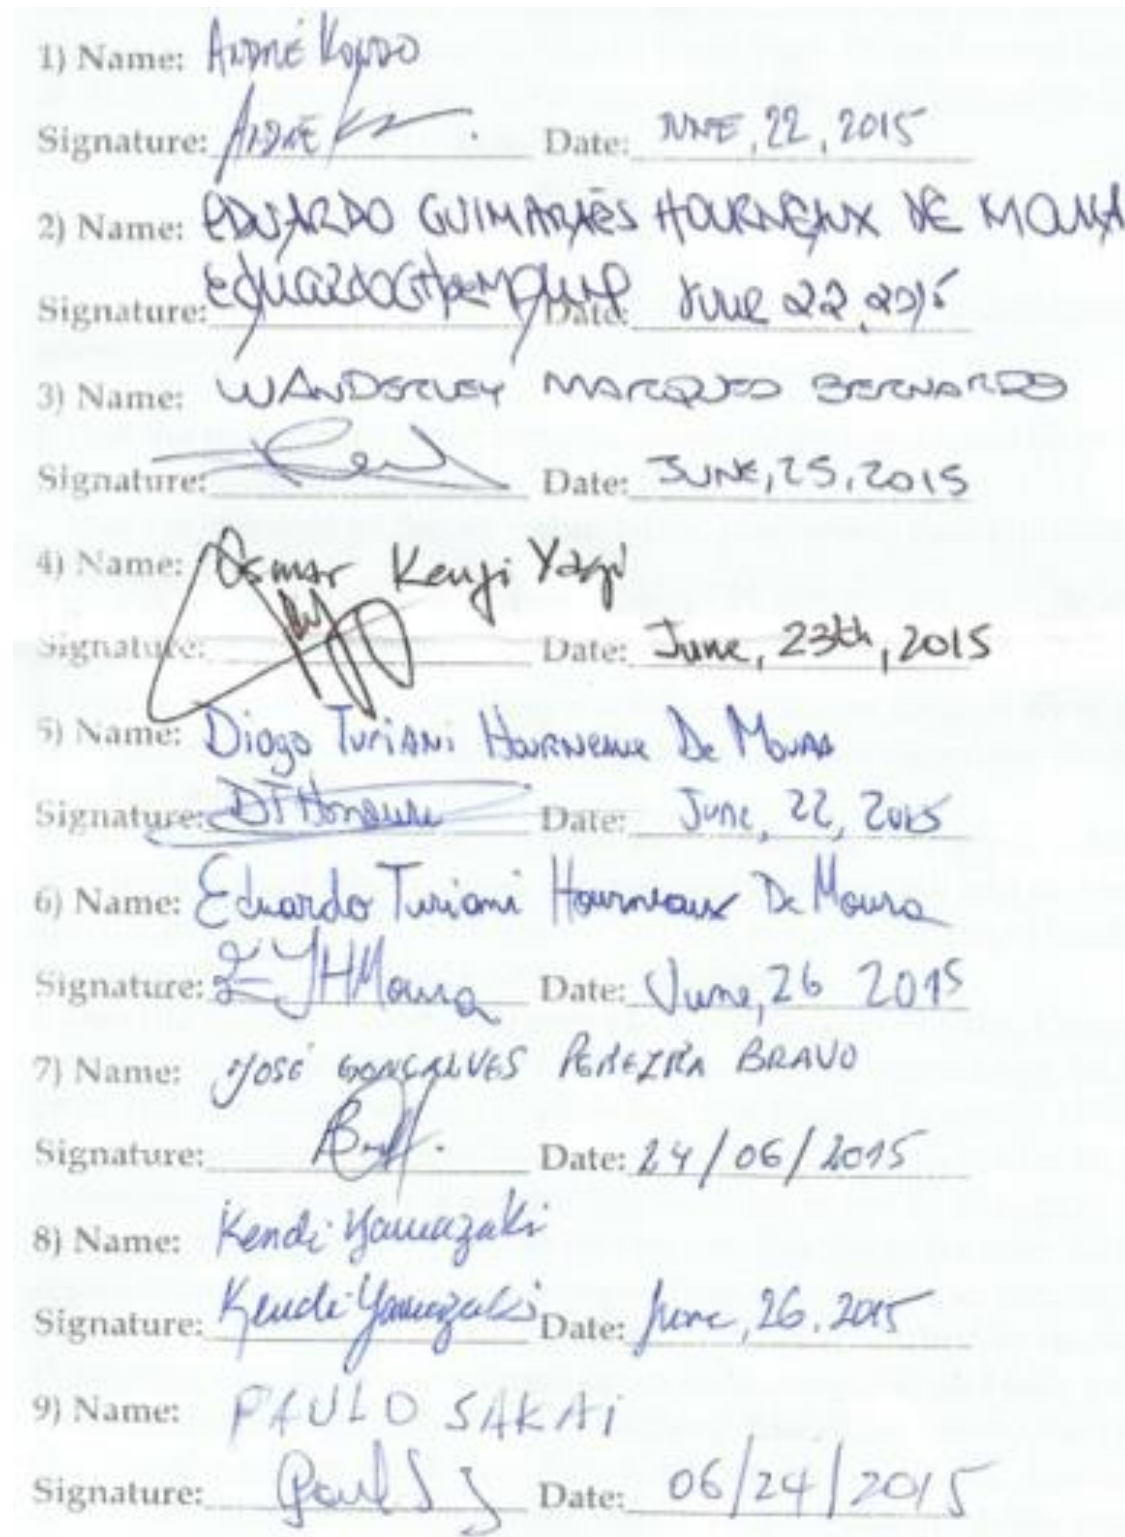 1) Name: ANDRÉ KONDO
Signature: ANDRÉ K Date: JUNE, 22, 2015
2) Name: EDUARDO GUIMARÃES HOURNEAUX DE MOURA
Signature: Date: June 22, 2015
3) Name: WANDERLEY MARQUES BERNARDO
Signature: Date: JUNE, 25, 2015
4) Name: Osmar Kenji Yagi
Signature: Date: June, 23th, 2015
5) Name: Diogo Turiani Hourneaux De Moura
Signature: Date: June, 22, 2015
6) Name: Eduardo Turiani Hourneaux De Moura
Signature: ETHMoura Date: June, 26 2015
7) Name: JOSÉ GONÇALVES PEREIRA BRAVO
Signature: Date: 24/06/2015
8) Name: Kendi Yamazaki
Signature: Kendi Yamazaki Date: June, 26. 2015
9) Name: PAULO SAKAI
Signature: Date: 06/24/2015